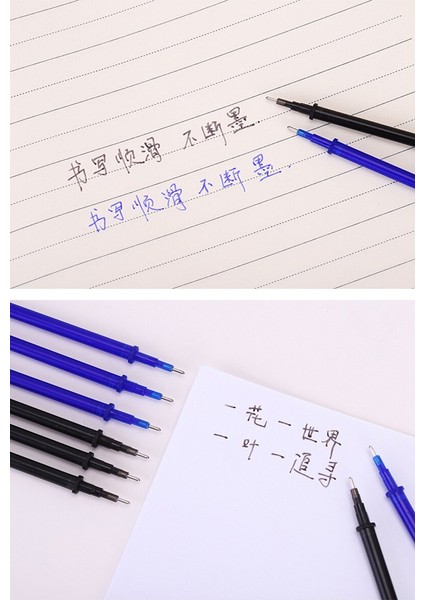 书写顺滑 不断墨.
书写顺滑 不断墨.
一花 一世界
一叶 一追寻